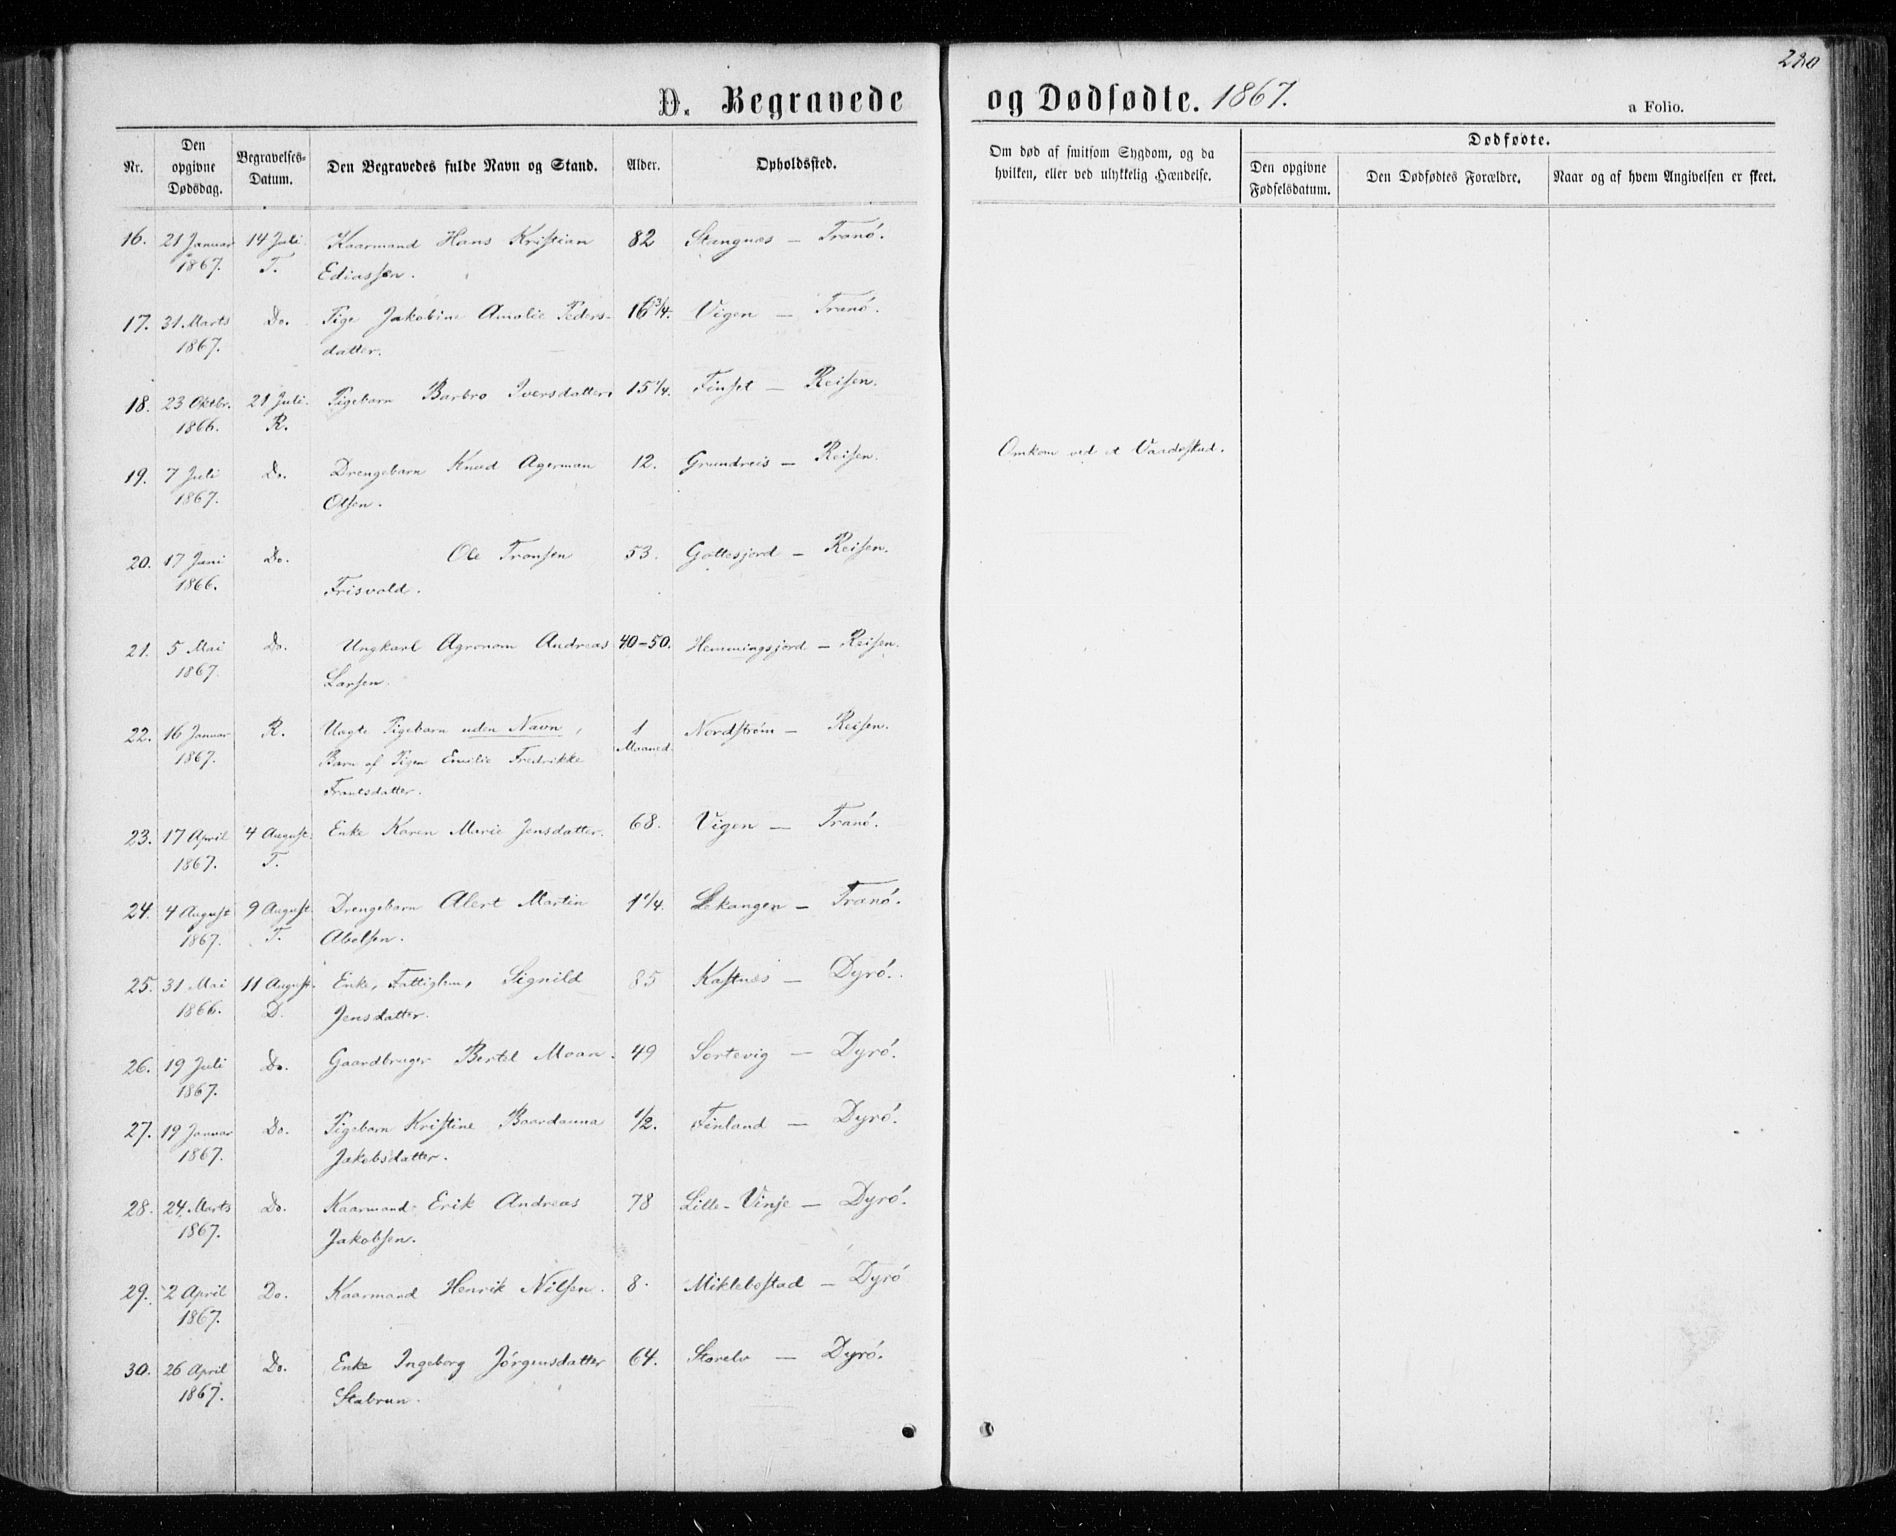 280
D. Begravede og Dødfødte. 1867.
a Folio.
Nr.
Den opgivne Dødsdag.
Begravelses-Datum.
Den Begravedes fulde Navn og Stand.
Alder.
Opholdssted.
Om død af smitsom Sygdom, og da hvilken, eller ved ulykkelig Hændelse.
Dødfødte.
Den opgivne Fødselsdatum.
Den Dødfødtes Forældre.
Naar og af hvem Angivelsen er skeet.
16. 21 Januar 14 Juli Kaarmand Hans Kristian 82 Stangnæs — Tranö.
1867. T. Ediassen.
17. 31 Marts Do. Pige Jakobine Amalie Peders- 16 3/4. Vigen — Tranö.
1867. datter.
18. 23 Oktbr. 21 Juli. Pigebarn Barbro Iversdatter 15 1/4. Finset — Reisen.
1866. R.
19. 7 Juli Do. Drengebarn Knud Agerman 12. Grundreis — Reisen. Omkom ved et Vaadeskud.
1867. Olsen.
20. 17 Juni Do. Ole Tronsen 53. Gottesjord — Reisen.
1866. Frisvold.
21. 5 Mai Do. Ungkarl Agronom Andreas 40-50. Hemmingsjord — Reisen.
1867. Larsen.
22. 16 Januar R. Uægte Pigebarn uden Navn, 1 Nordstrøm — Reisen.
1867. Barn af Pigen Emilie Fredrikke Maaned.
Frantsdatter.
23. 17 April 4 August. Enke Karen Marie Jensdatter. 68. Vigen — Tranö.
1867. T.
24. 4 August 9 August. Drengebarn Alert Martin 1 1/4. Lekangen — Tranö.
1867. T. Abelsen.
25. 31 Mai 11 August. Enke, Fattiglem, Signild 85 Kastnæs — Dyrö.
1866. D. Jensdatter.
26. 19 Juli Do. Gaardbruger Bertel Moan. 49 Sortevig — Dyrö.
1867.
27. 19 Januar Do. Pigebarn Kristine Baardauna 1/2. Finland — Dyrö.
1867. Jakobsdatter.
28. 24 Marts Do. Kaarmand Erik Andreas 78 Lille-Vinje — Dyrö.
1867. Jakobsen.
29. 2 April Do. Kaarmand Henrik Nilsen. 8. Miklebostad — Dyrö
1867.
30. 26 April Do. Enke Ingeborg Jörgensdatter 64. Storelv — Dyrö.
1867. Stabrun.